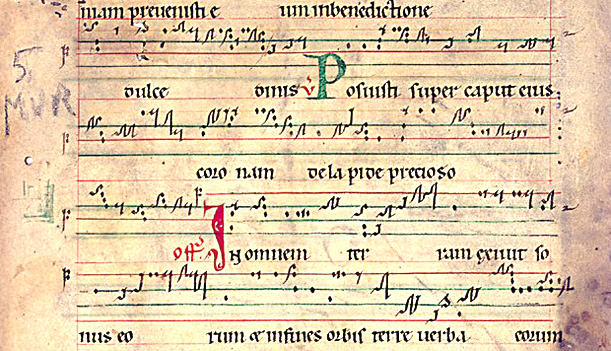 niam prevenisti e um in benedictione
dulce dinis v Posuisti super caput eius
5
MUR
coro nam de lapide precioso
off In omnem ter ram exivit so
nus eo rum & in fines orbis terre verba eorum